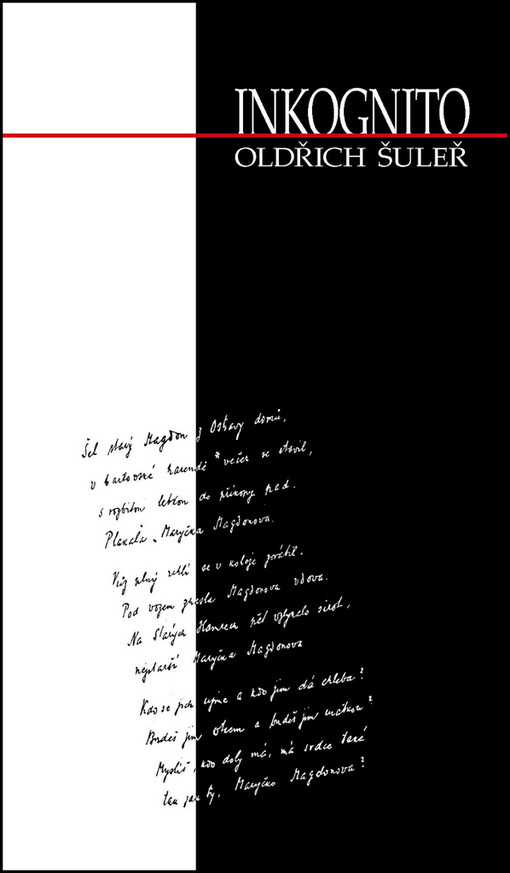 INKOGNITO
OLDŘICH ŠULEŘ
Šel starý Magdon z Ostravy domů,
v bartovské harendě večer se stavil,
s rozbitou lebkou do příkopy pad.
Plakala Maryčka Magdonova.
Vůz plný uhlí se v koleje zvrátil.
Pod vozem zhasla Magdonova vdova.
Na Starých Hamrech pět vzlykalo sirot,
nejstarší Maryčka Magdonova
Kdo se jich ujme a kdo jim dá chleba?
Budeš jim otcem a budeš jim matkou?
Myslíš, kdo doly má, má srdce také
tak jak ty, Maryčko Magdonova?